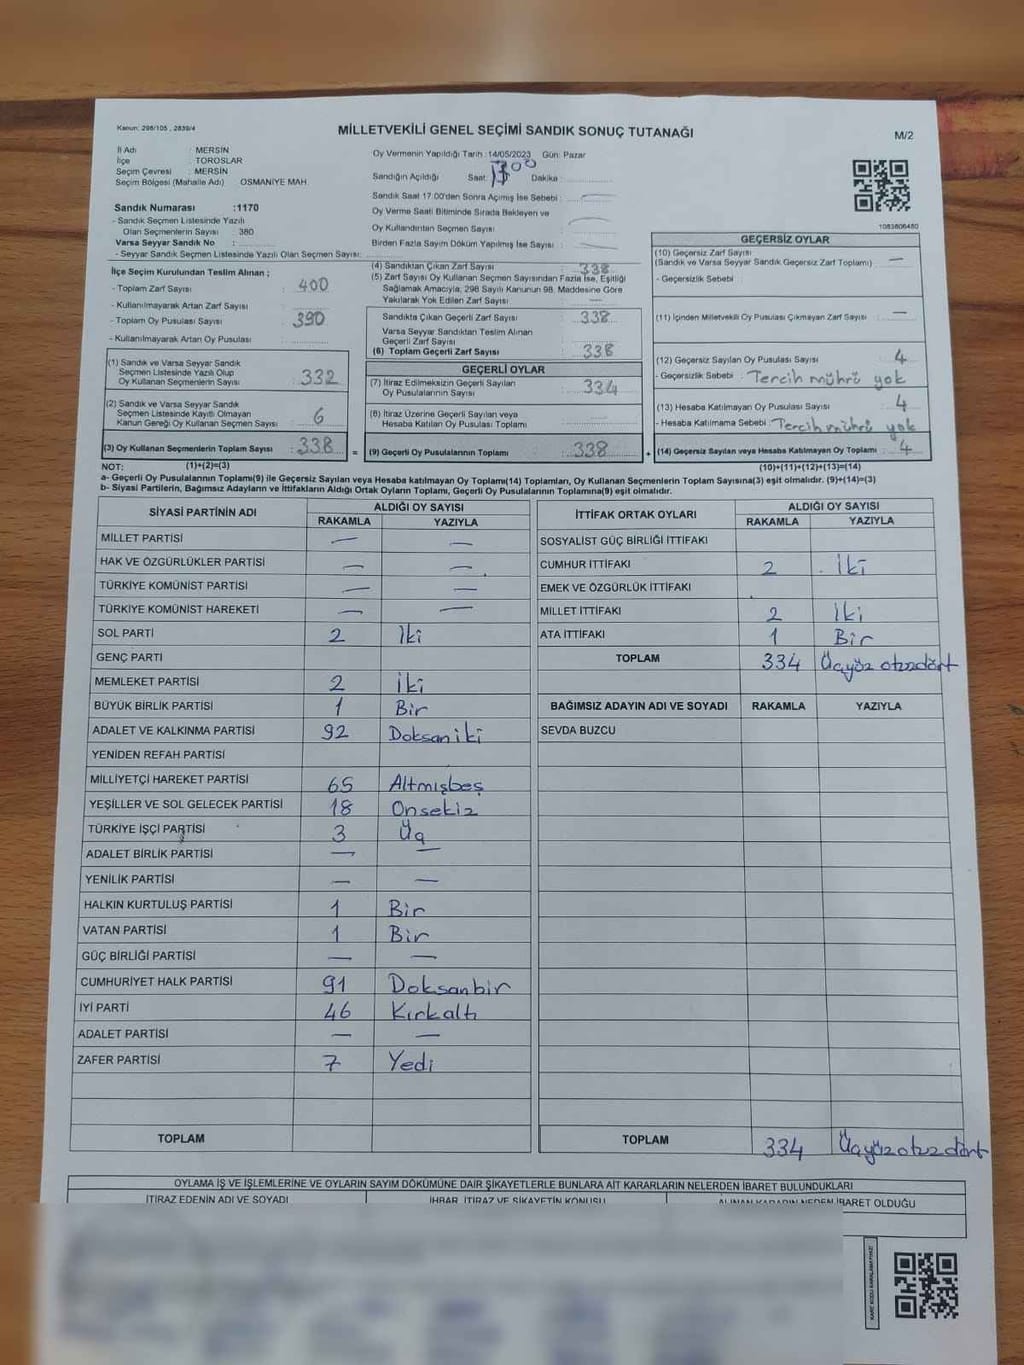 Kanun: 298/105 , 2839/4
MİLLETVEKİLİ GENEL SEÇİMİ SANDIK SONUÇ TUTANAĞI
M/2
İl Adı : MERSİN
İlçe : TOROSLAR
Seçim Çevresi : MERSİN
Seçim Bölgesi (Mahalle Adı) OSMANİYE MAH.
Sandık Numarası :1170
- Sandık Seçmen Listesinde Yazılı
Olan Seçmenlerin Sayısı : 380
Varsa Seyyar Sandık No :
- Seyyar Sandık Seçmen Listesinde Yazılı Olan Seçmen Sayısı:
Oy Vermenin Yapıldığı Tarih :14/05/2023 Gün: Pazar
Sandığın Açıldığı Saat: Dakika:
Sandık Saat 17.00'den Sonra Açılmış İse Sebebi :
Oy Verme Saati Bitiminde Sırada Bekleyen ve
Oy Kullandırılan Seçmen Sayısı :
Birden Fazla Sayım Döküm Yapılmış İse Sayısı :
1083606480
İlçe Seçim Kurulundan Teslim Alınan ;
- Toplam Zarf Sayısı : 400
- Kullanılmayarak Artan Zarf Sayısı :
- Toplam Oy Pusulası Sayısı : 390
- Kullanılmayarak Artan Oy Pusulası :
(1) Sandık ve Varsa Seyyar Sandık
Seçmen Listesinde Yazılı Olup
Oy Kullanan Seçmenlerin Sayısı : 332
(2) Sandık ve Varsa Seyyar Sandık
Seçmen Listesinde Kayıtlı Olmayan
Kanun Gereği Oy Kullanan Seçmen Sayısı : 6
(3) Oy Kullanan Seçmenlerin Toplam Sayısı : 338 =
(4) Sandıktan Çıkan Zarf Sayısı : 338
(5) Zarf Sayısı Oy Kullanan Seçmen Sayısından Fazla İse, Eşitliği
Sağlamak Amacıyla; 298 Sayılı Kanunun 98. Maddesine Göre
Yakılarak Yok Edilen Zarf Sayısı : —
Sandıkta Çıkan Geçerli Zarf Sayısı : 338
Varsa Seyyar Sandıktan Teslim Alınan
Geçerli Zarf Sayısı :
(6) Toplam Geçerli Zarf Sayısı : 338
GEÇERLİ OYLAR
(7) İtiraz Edilmeksizin Geçerli Sayılan
Oy Pusulalarının Sayısı : 334
(8) İtiraz Üzerine Geçerli Sayılan veya
Hesaba Katılan Oy Pusulası Toplamı :
(9) Geçerli Oy Pusulalarının Toplamı : 338 +
GEÇERSİZ OYLAR
(10) Geçersiz Zarf Sayısı
(Sandık ve Varsa Seyyar Sandık Geçersiz Zarf Toplamı) : —
- Geçersizlik Sebebi :
(11) İçinden Milletvekili Oy Pusulası Çıkmayan Zarf Sayısı : —
(12) Geçersiz Sayılan Oy Pusulası Sayısı : 4
- Geçersizlik Sebebi : Tercih mührü yok
(13) Hesaba Katılmayan Oy Pusulası Sayısı : 4
- Hesaba Katılmama Sebebi : Tercih mührü yok
(14) Geçersiz Sayılan veya Hesaba Katılmayan Oy Toplamı : 4
NOT: (1)+(2)=(3) (10)+(11)+(12)+(13)=(14)
a- Geçerli Oy Pusulalarının Toplamı(9) ile Geçersiz Sayılan veya Hesaba katılmayan Oy Toplamı(14) Toplamları, Oy Kullanan Seçmenlerin Toplam Sayısına(3) eşit olmalıdır. (9)+(14)=(3)
b- Siyasi Partilerin, Bağımsız Adayların ve İttifakların Aldığı Ortak Oyların Toplamı, Geçerli Oy Pusulalarının Toplamına(9) eşit olmalıdır.
SİYASİ PARTİNİN ADI ALDIĞI OY SAYISI
RAKAMLA YAZIYLA
MİLLET PARTİSİ — —
HAK VE ÖZGÜRLÜKLER PARTİSİ — —
TÜRKİYE KOMÜNİST PARTİSİ — —
TÜRKİYE KOMÜNİST HAREKETİ — —
SOL PARTİ 2 İki
GENÇ PARTİ
MEMLEKET PARTİSİ 2 İki
BÜYÜK BİRLİK PARTİSİ 1 Bir
ADALET VE KALKINMA PARTİSİ 92 Doksaniki
YENİDEN REFAH PARTİSİ
MİLLİYETÇİ HAREKET PARTİSİ 65 Altmışbeş
YEŞİLLER VE SOL GELECEK PARTİSİ 18 Onsekiz
TÜRKİYE İŞÇİ PARTİSİ 3 Üç
ADALET BİRLİK PARTİSİ — —
YENİLİK PARTİSİ — —
HALKIN KURTULUŞ PARTİSİ 1 Bir
VATAN PARTİSİ 1 Bir
GÜÇ BİRLİĞİ PARTİSİ — —
CUMHURİYET HALK PARTİSİ 91 Doksanbir
İYİ PARTİ 46 Kırkaltı
ADALET PARTİSİ — —
ZAFER PARTİSİ 7 Yedi
TOPLAM
İTTİFAK ORTAK OYLARI ALDIĞI OY SAYISI
RAKAMLA YAZIYLA
SOSYALİST GÜÇ BİRLİĞİ İTTİFAKI
CUMHUR İTTİFAKI 2 İki
EMEK VE ÖZGÜRLÜK İTTİFAKI
MİLLET İTTİFAKI 2 İki
ATA İTTİFAKI 1 Bir
TOPLAM 334 Üçyüz otuzdört
BAĞIMSIZ ADAYIN ADI VE SOYADI RAKAMLA YAZIYLA
SEVDA BUZCU
TOPLAM 334 Üçyüzotuzdört
OYLAMA İŞ VE İŞLEMLERİNE VE OYLARIN SAYIM DÖKÜMÜNE DAİR ŞİKAYETLERLE BUNLARA AİT KARARLARIN NELERDEN İBARET BULUNDUKLARI
İTİRAZ EDENİN ADI VE SOYADI İHBAR, İTİRAZ VE ŞİKAYETİN KONUSU ALINAN KARARIN NEDEN İBARET OLDUĞU